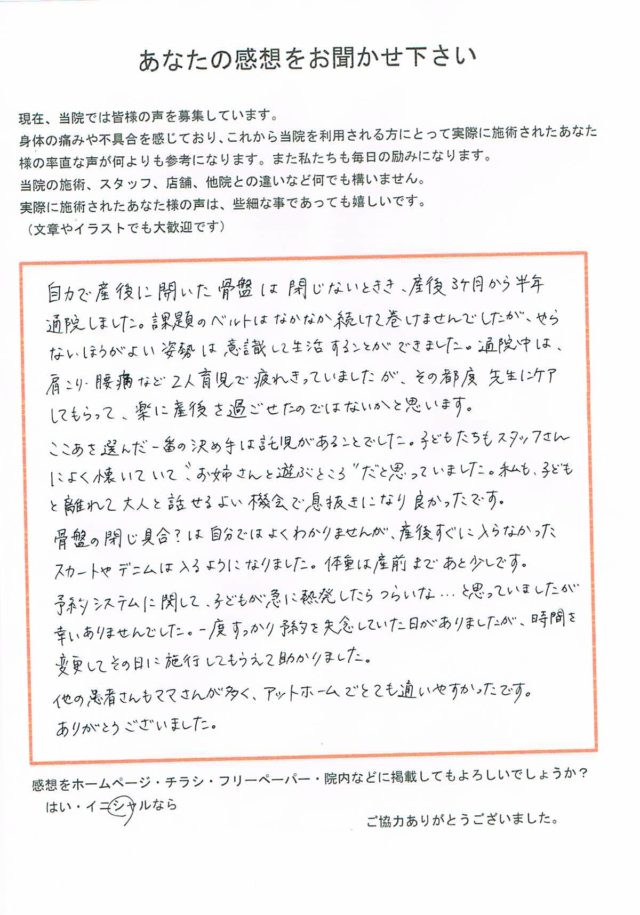 あなたの感想をお聞かせ下さい
現在、当院では皆様の声を募集しています。
身体の痛みや不具合を感じており、これから当院を利用される方にとって実際に施術されたあなた
様の率直な声が何よりも参考になります。また私たちも毎日の励みになります。
当院の施術、スタッフ、店舗、他院との違いなど何でも構いません。
実際に施術されたあなた様の声は、些細な事であっても嬉しいです。
（文章やイラストでも大歓迎です）
自力で産後に開いた骨盤は閉じないときき、産後3ヶ月から半年
通院しました。課題のベルトはなかなか続けて巻けませんでしたが、やら
ないほうがよい姿勢は意識して生活することができました。通院中は、
肩こり・腰痛など2人育児で疲れきっていましたが、その都度先生にケア
してもらって、楽に産後を過ごせたのではないかと思います。
ここあを選んだ一番の決め手は託児があることでした。子どもたちもスタッフさん
によく懐いていて“お姉さんと遊ぶところ”だと思っていました。私も、子ども
と離れて大人と話せるよい機会で息抜きになり良かったです。
骨盤の閉じ具合？は自分ではよくわかりませんが、産後すぐに入らなかった
スカートやデニムは入るようになりました。体重は産前まであと少しです。
予約システムに関して、子どもが急に熱発したらつらいな…と思っていましたが
幸いありませんでした。一度すっかり予約を失念していた日がありましたが、時間を
変更してその日に施行してもらえて助かりました。
他の患者さんもママさんが多く、アットホームでとても通いやすかったです。
ありがとうございました。
感想をホームページ・チラシ・フリーペーパー・院内などに掲載してもよろしいでしょうか？
はい・イニシャルなら
ご協力ありがとうございました。